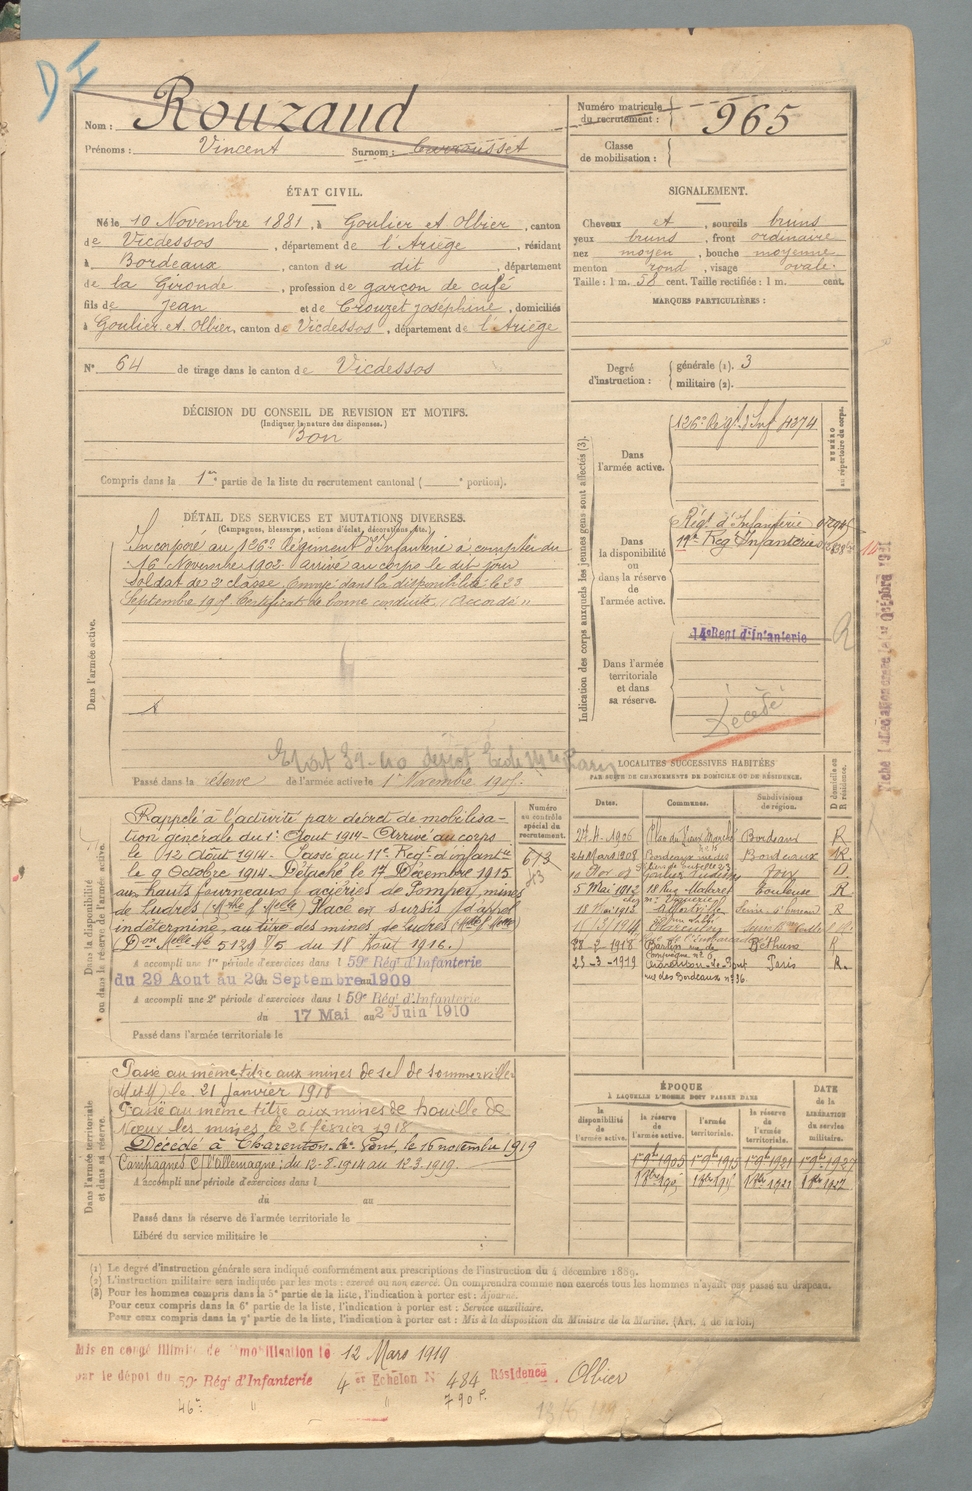 D I
Nom : Rouzaud
Prénoms : Vincent Surnom :
Numéro matricule du recrutement : 965
Classe de mobilisation :
ÉTAT CIVIL.
Né le 10 Novembre 1881, à Goulier et Olbier, canton
de Vicdessos, département de l'Ariège, résidant
à Bordeaux, canton du dit, département
de la Gironde, profession de garçon de café
fils de Jean et de Crouzet Joséphine, domiciliés
à Goulier et Olbier, canton de Vicdessos, département de l'Ariège
SIGNALEMENT.
Cheveux et, sourcils bruns
yeux bruns, front ordinaire
nez moyen, bouche moyenne
menton rond, visage ovale.
Taille : 1 m. 58 cent. Taille rectifiée : 1 m. cent.
MARQUES PARTICULIÈRES :
N° 64 de tirage dans le canton de Vicdessos
Degré d'instruction : générale (1). 3
militaire (2).
DÉCISION DU CONSEIL DE REVISION ET MOTIFS.
(Indiquer la nature des dispenses.)
Bon
Compris dans la 1re partie de la liste du recrutement cantonal ( e portion).
DÉTAIL DES SERVICES ET MUTATIONS DIVERSES.
(Campagnes, blessures, actions d'éclat, décorations, etc.)
Dans l'armée active.
Incorporé au 126e Régiment d'Infanterie à compter du
16 Novembre 1902 arrivé au corps le dit jour
soldat de 2e classe, Envoyé dans la disponibilité le 23
Septembre 1905 Certificat de bonne conduite "Accordé"
Passé dans la réserve de l'armée active le 1 Novembre 1905.
Indication des corps auxquels les jeunes gens sont affectés (3).
NUMÉRO au répertoire du corps.
Dans l'armée active.
126e Régt d'Inf 4374
Dans la disponibilité ou dans la réserve de l'armée active.
Régt d'Infanterie
11e Reg Infanterie
Dans l'armée territoriale et dans sa réserve.
14e Regt d'Infanterie
R
Décédé
Dans la disponibilité ou dans la réserve de l'armée active.
Rappelé à l'activité par décret de mobilisa-
tion générale du 1er Aout 1914 - Arrivé au corps
le 12 Août 1914 - Passé au 11e Regt d'infanterie
le 9 Octobre 1914 - Détaché le 17 Décembre 1915
aux hauts fourneaux & aciéries de Pompey, mines
de Ludres (Mthe & Melle) Placé en sursis d'appel
indéterminé, au titre des mines de Ludres (Mthe & Melle)
du 18 Août 1916.)
A accompli une 1re période d'exercices dans l 59e Régt d'Infanterie
du 29 Aout au 20 Septembre 1909
A accompli une 2e période d'exercices dans l 59e Régt d'Infanterie
du 17 Mai au 2 Juin 1910
Passé dans l'armée territoriale le
Numéro au contrôle spécial du recrutement.
613
LOCALITÉS SUCCESSIVES HABITÉES
PAR SUITE DE CHANGEMENTS DE DOMICILE OU DE RÉSIDENCE.
Dates. Communes. Subdivisions de région. D domicile ou R résidence.
1906 Bordeaux R
24 Mars 1908 Bordeaux Bordeaux R.
Goulier Foix D
5 Mai 1912 Toulouse R
18 Mai 1913
28-2-1918 Barlin Béthune R
23-3-1919 Charenton-le-Pont Paris R.
rue des Bordeaux n° 36.
Dans l'armée territoriale et dans sa réserve.
Passé au même titre aux mines de sel de Sommerviller
(M et M) le 21 Janvier 1918
Passé au même titre aux mines de houille de
Nœux les mines le 26 février 1918
Décédé à Charenton-le-Pont, le 16 novembre 1919
Campagnes C/ l'Allemagne : du 12-8-1914 au 12.3.1919.
A accompli une période d'exercices dans l
du au
Passé dans la réserve de l'armée territoriale le
Libéré du service militaire le
ÉPOQUE
A LAQUELLE L'HOMME DOIT PASSER DANS
la disponibilité de l'armée active. la réserve de l'armée active. l'armée territoriale. la réserve de l'armée territoriale. DATE de la LIBÉRATION du service militaire.
1er 9bre 1905 1er 9bre 1915 1er 9bre 1921 1er 9bre 1927
(1) Le degré d'instruction générale sera indiqué conformément aux prescriptions de l'instruction du 4 décembre 1889.
(2) L'instruction militaire sera indiquée par les mots : exercé ou non exercé. On comprendra comme non exercés tous les hommes n'ayant pas passé au drapeau.
(3) Pour les hommes compris dans la 5e partie de la liste, l'indication à porter est : Ajourné.
Pour ceux compris dans la 6e partie de la liste, l'indication à porter est : Service auxiliaire.
Pour ceux compris dans la 7e partie de la liste, l'indication à porter est : Mis à la disposition du Ministre de la Marine. (Art. 4 de la loi.)
Mis en congé illimité de démobilisation le 12 Mars 1919
par le dépôt du 59e Régt d'Infanterie 4er Echelon N° 484 Résidence Olbier
46e " " 790 P.